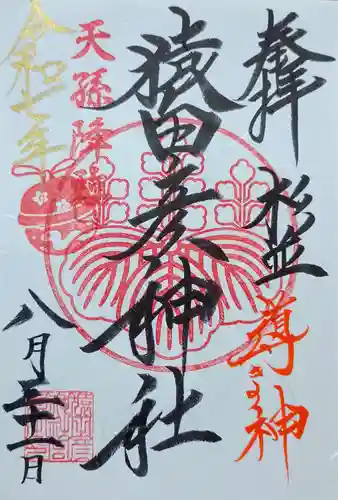 奉拝
杉並
導
神
猿田彦神社
天孫降臨
令和七年
八月三十一日